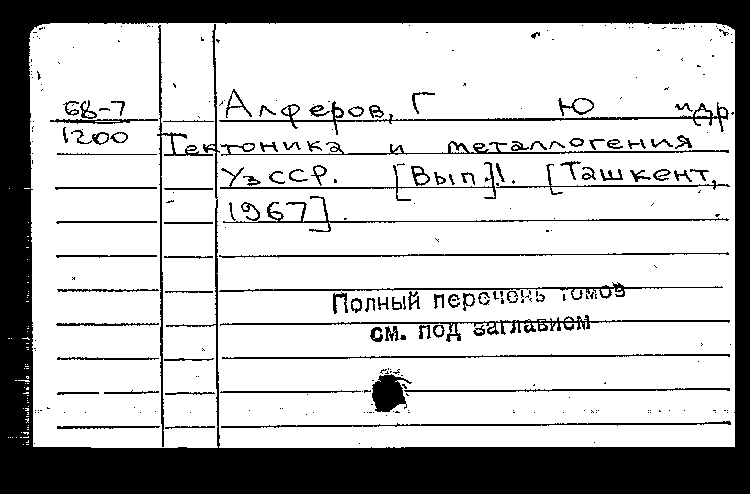 68-7 Алферов, Г Ю и др
1200 Тектоника и металлогения
УзССР. [Вып.]1. [Ташкент,
1967].
Полный перечень томов
см. под заглавием